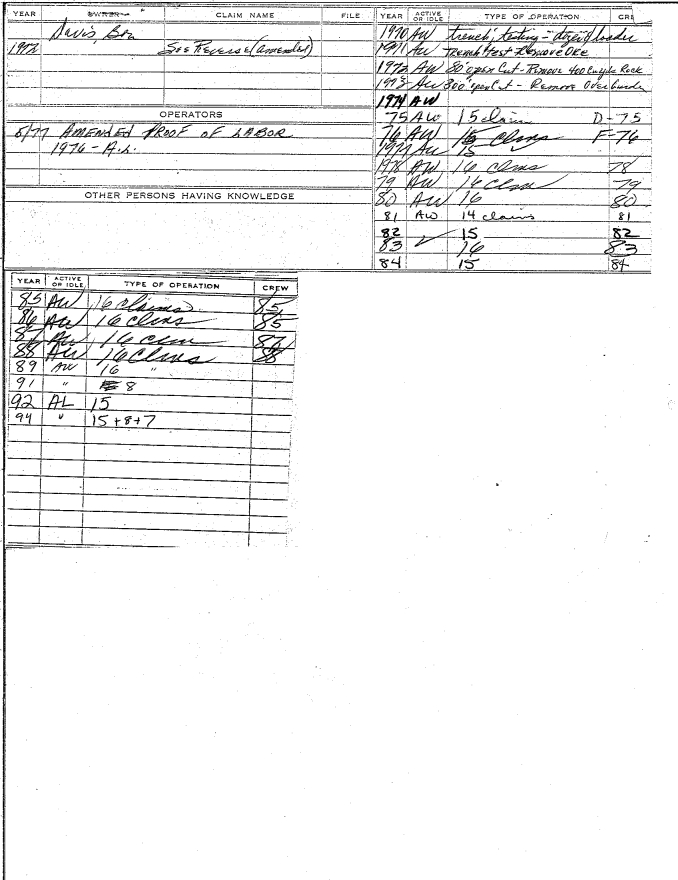 YEAR OWNER CLAIM NAME FILE
Davis, Ben
1972 See Reverse (amended)
OPERATORS
5/77 AMENDED PROOF OF LABOR
1976 - A.L.
OTHER PERSONS HAVING KNOWLEDGE
YEAR ACTIVE OR IDLE TYPE OF OPERATION CRE
1970 AW trench, testing - loader
1971 AW Trench test Remove Ore
1972 AW 80' open Cut - Remove 400 Cu yds Rock
1973 AW 300' open Cut - Remove Overburden
1974 AW
75 AW 15 claim D-75
76 AW 15 clms F-76
1977 AW 15 ✓
1978 AW 16 clms 78
79 AW 16 clm 79
80 AW 16 80
81 AW 14 claims 81
82 15 82
83 ✓ 16 83
84 15 84
YEAR ACTIVE OR IDLE TYPE OF OPERATION CREW
85 AW 16 claims 85
86 AW 16 clms 85
87 AW 16 clm 87
88 AW 16 clms 88
89 AW 16 "
91 " 8
92 AL 15
94 " 15+8+7